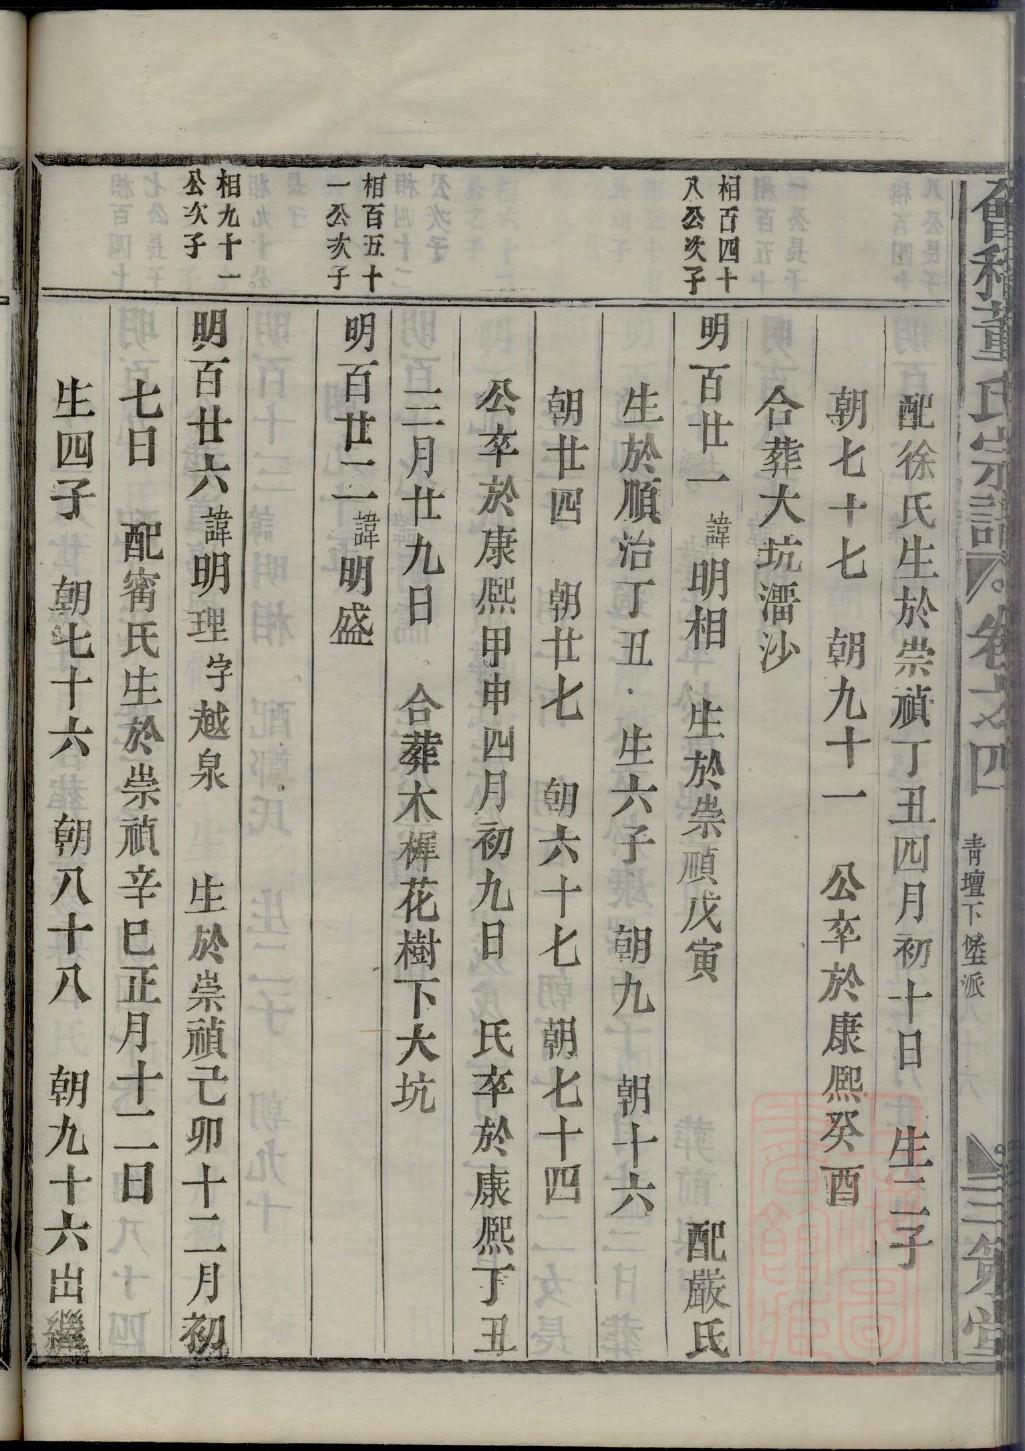 會稽董氏宗譜 卷之四 青壇下堡派 三策堂
配徐氏生於崇禎丁丑四月初十日 生二子
朝七十七 朝九十一 公卒於康熙癸酉
合葬大坑濇沙
相百四十
八公次子
明百廿一 諱明相 生於崇禎戊寅 配嚴氏
生於順治丁丑 生六子 朝九 朝十六
朝廿四 朝廿七 朝六十七 朝七十四
公卒於康熙甲申四月初九日 氏卒於康熙丁丑
三月廿九日 合葬木樨花樹下大坑
相百五十
一公次子
明百廿二 諱明盛
相九十一
公次子
明百廿六 諱明理 字越泉 生於崇禎己卯十二月初
七日 配甯氏生於崇禎辛巳正月十二日
生四子 朝七十六 朝八十八 朝九十六出繼